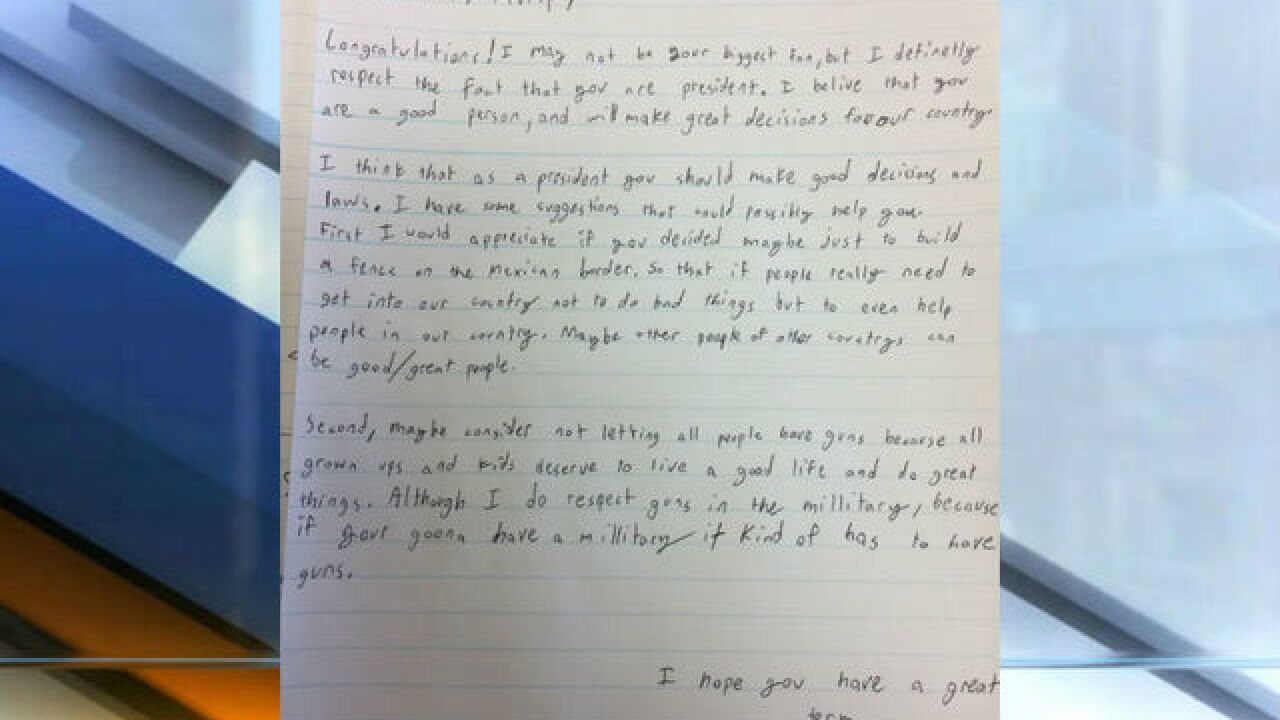 Congratulations! I may not be your biggest fan, but I definetly
respect the fact that you are president. I belive that you
are a good person, and will make great decisions for our country
I think that as a president you should make good decisions and
laws. I have some suggestions that could possibly help you.
First I would appreciate if you decided maybe just to build
a fence on the Mexican border. So that if people really need to
get into our country not to do bad things but to even help
people in our country. Maybe other people of other countrys can
be good/great people.
Second, maybe consider not letting all people have guns because all
grown ups and kids deserve to live a good life and do great
things. Although I do respect guns in the millitary, because
if your goona have a millitary it kind of has to have
guns.
I hope you have a great
term